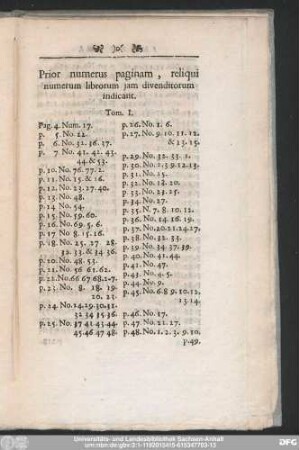 Prior numerus paginam, reliqui
numerum librorum jam divenditorum
indicant.
Tom. I.
Pag. 4. Num. 17.
p. 5. No. 22.
p. 6. No. 32. 36. 37.
p. 7. No. 41. 42. 43.
44. & 53.
p. 10. No. 76. 77. 2.
p. 11. No. 15. & 16.
p. 12. No. 23. 27. 40.
p. 13. No. 48.
p. 14. No. 54.
p. 15. No. 59. 60.
p. 16. No. 69. 5. 6.
p. 17. No. 8. 15. 16.
p. 18. No. 25. 27. 28.
32. 33. & 34. 36.
p. 20. No. 48. 53.
p. 21. No. 56. 61. 62.
p. 22. No. 66. 67. 68. 2-7.
p. 23. No. 8. 18. 19.
20. 23.
p. 24. No. 24. 29. 30. 31.
32. 34. 35. 36.
p. 25. No. 37. 41. 43. 44.
45. 46. 47. 48.
p. 26. No. 1. 6.
p. 27. No. 9. 10. 11. 12.
& 13. 15.
p. 29. No. 32. 33. 1.
p. 30. No. 1. 3. 9. 12. 13.
p. 31. No. 15.
p. 32. No. 18. 20.
p. 33. No. 23. 25.
p. 34. No. 17.
p. 35. N. 7. 8. 10. 11.
p. 36. No. 14. 16. 19.
p. 37. No. 20. 21. 24. 27.
p. 38. No. 32. 33.
p. 39. No. 34. 37. 39.
p. 40. No. 41. 44.
p. 41. No. 47.
p. 43. No. 4. 5.
p. 44. No. 9.
p. 45. No. 6. 8. 9. 10. 12.
13. 14.
p. 46. No. 17.
p. 47. No. 21. 27.
p. 48. No. 1. 2. 3. 9. 10.
p. 49.
Universitäts- und Landesbibliothek Sachsen-Anhalt
urn:nbn:de:gbv:3:1-1192015415-615347703-13
DFG